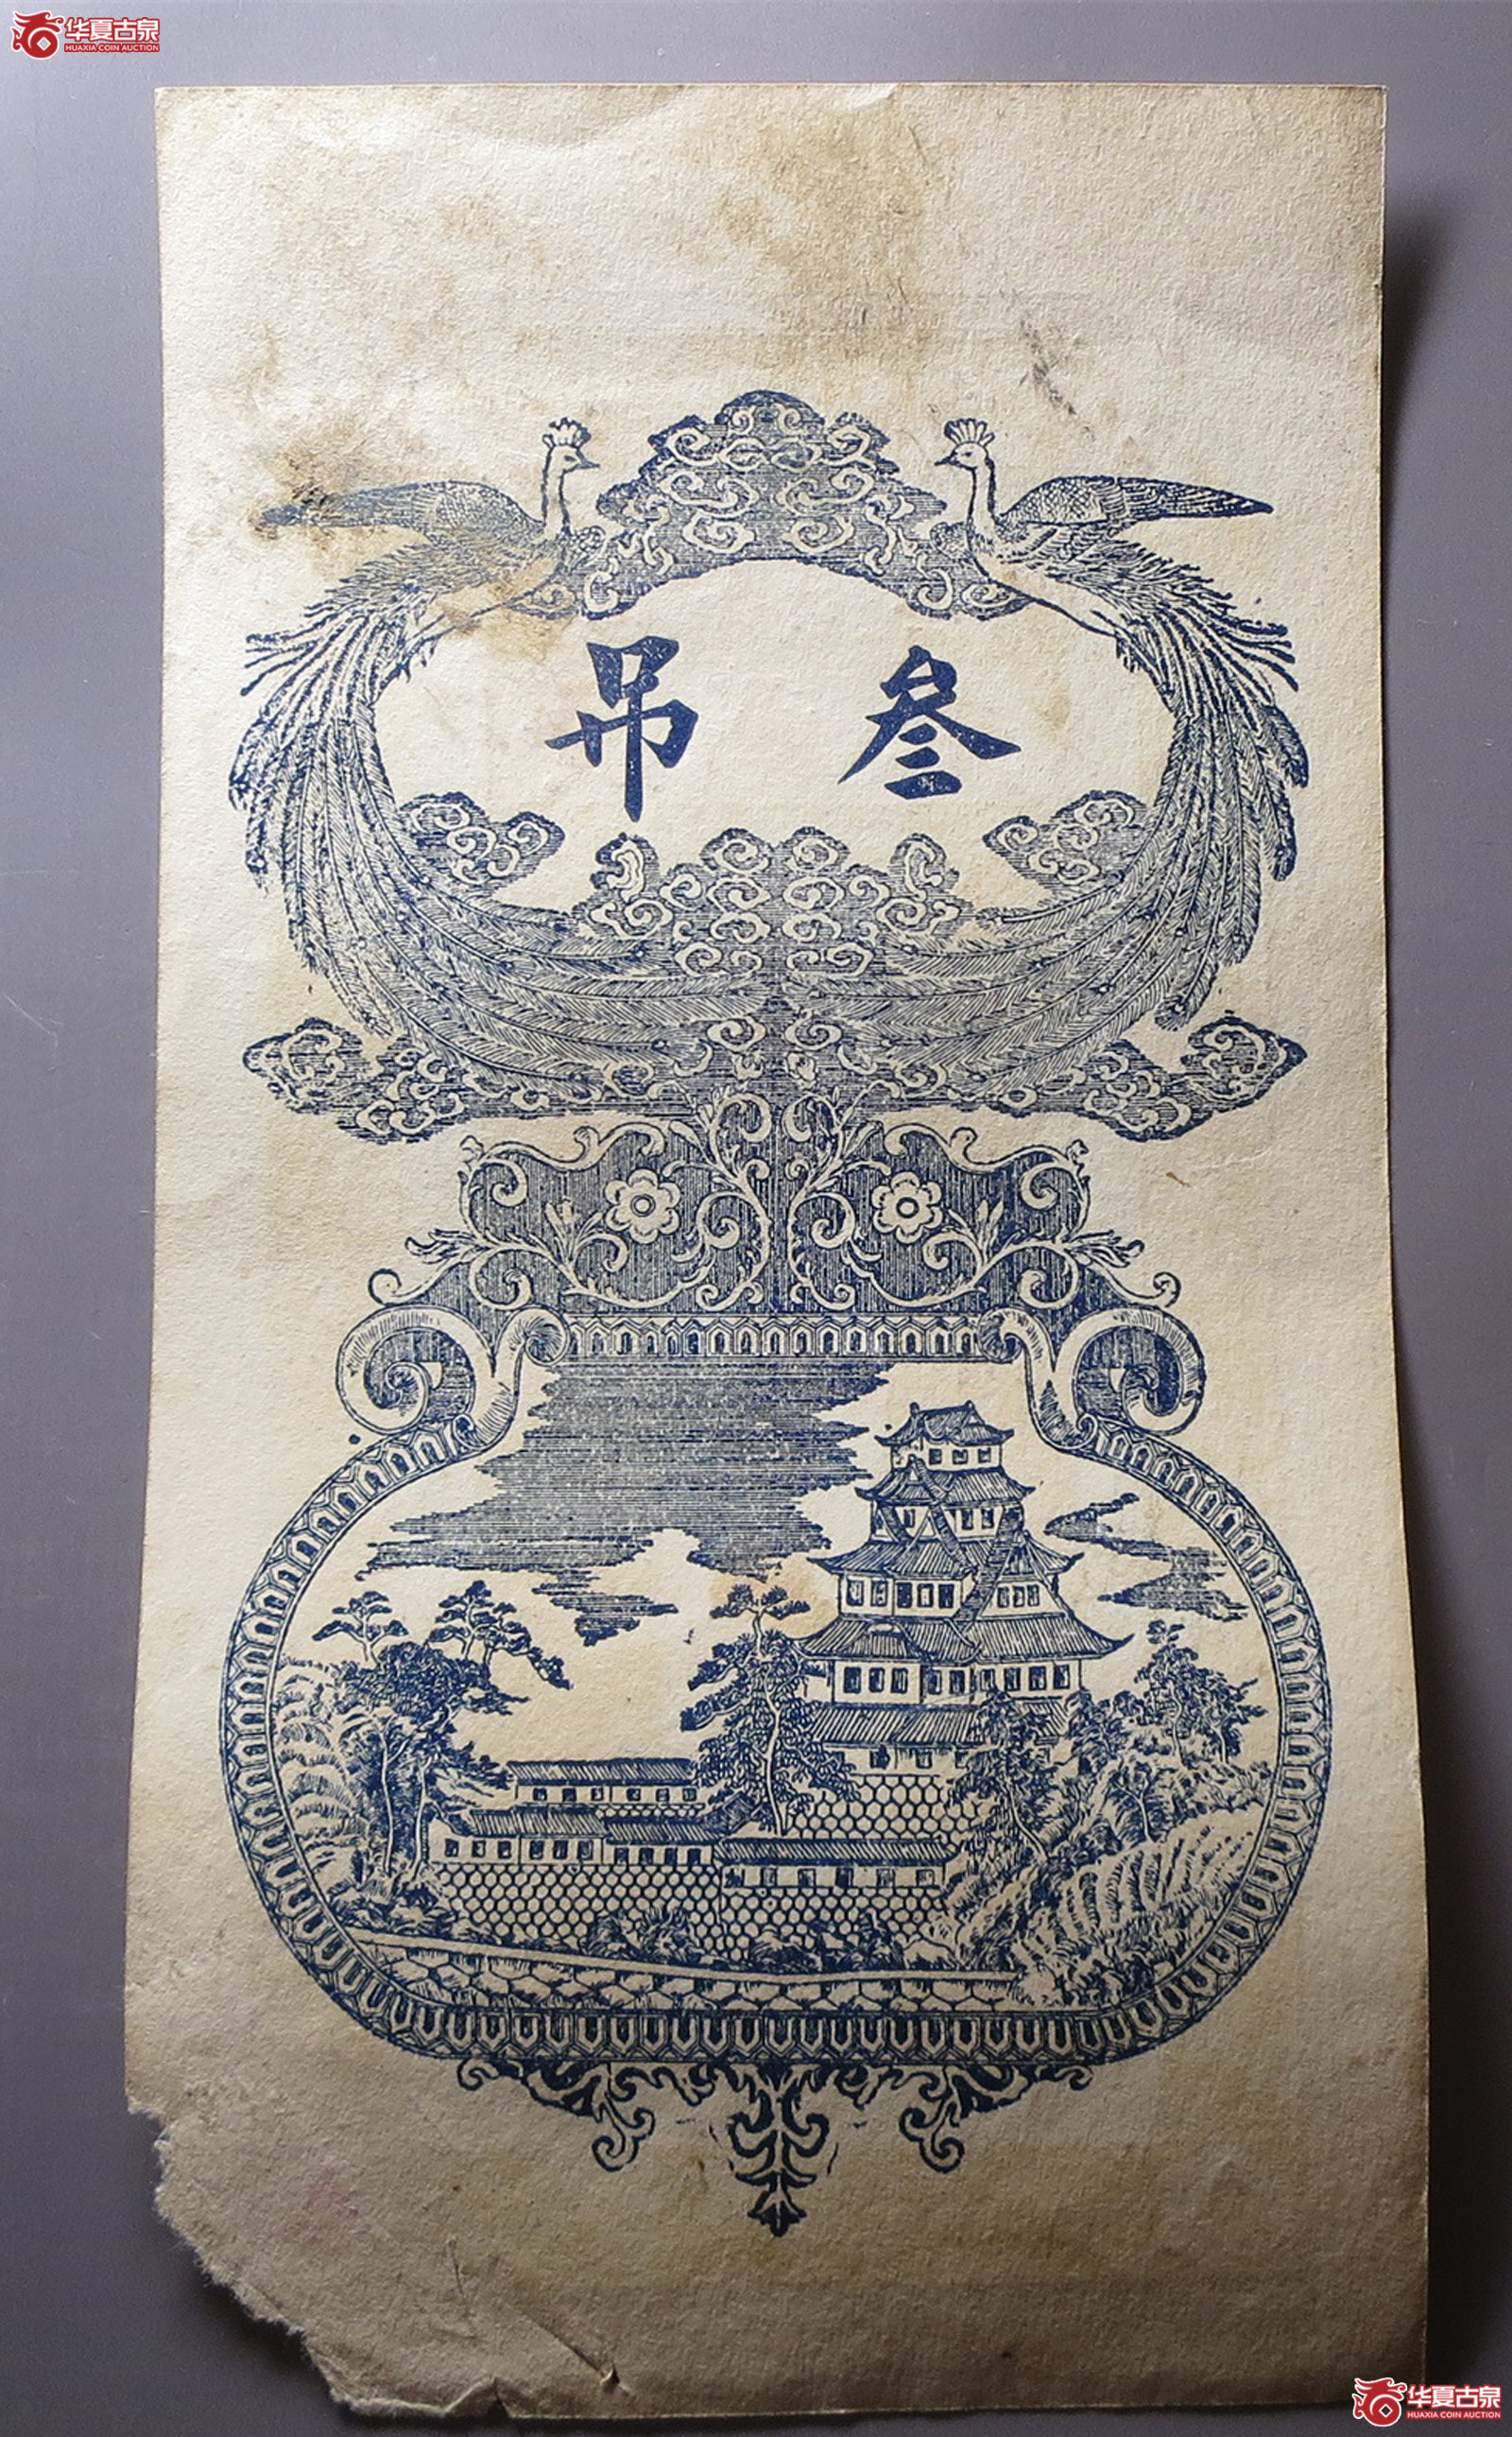 华夏古泉
HUAXIA COIN AUCTION
叁吊
华夏古泉
HUAXIA COIN AUCTION